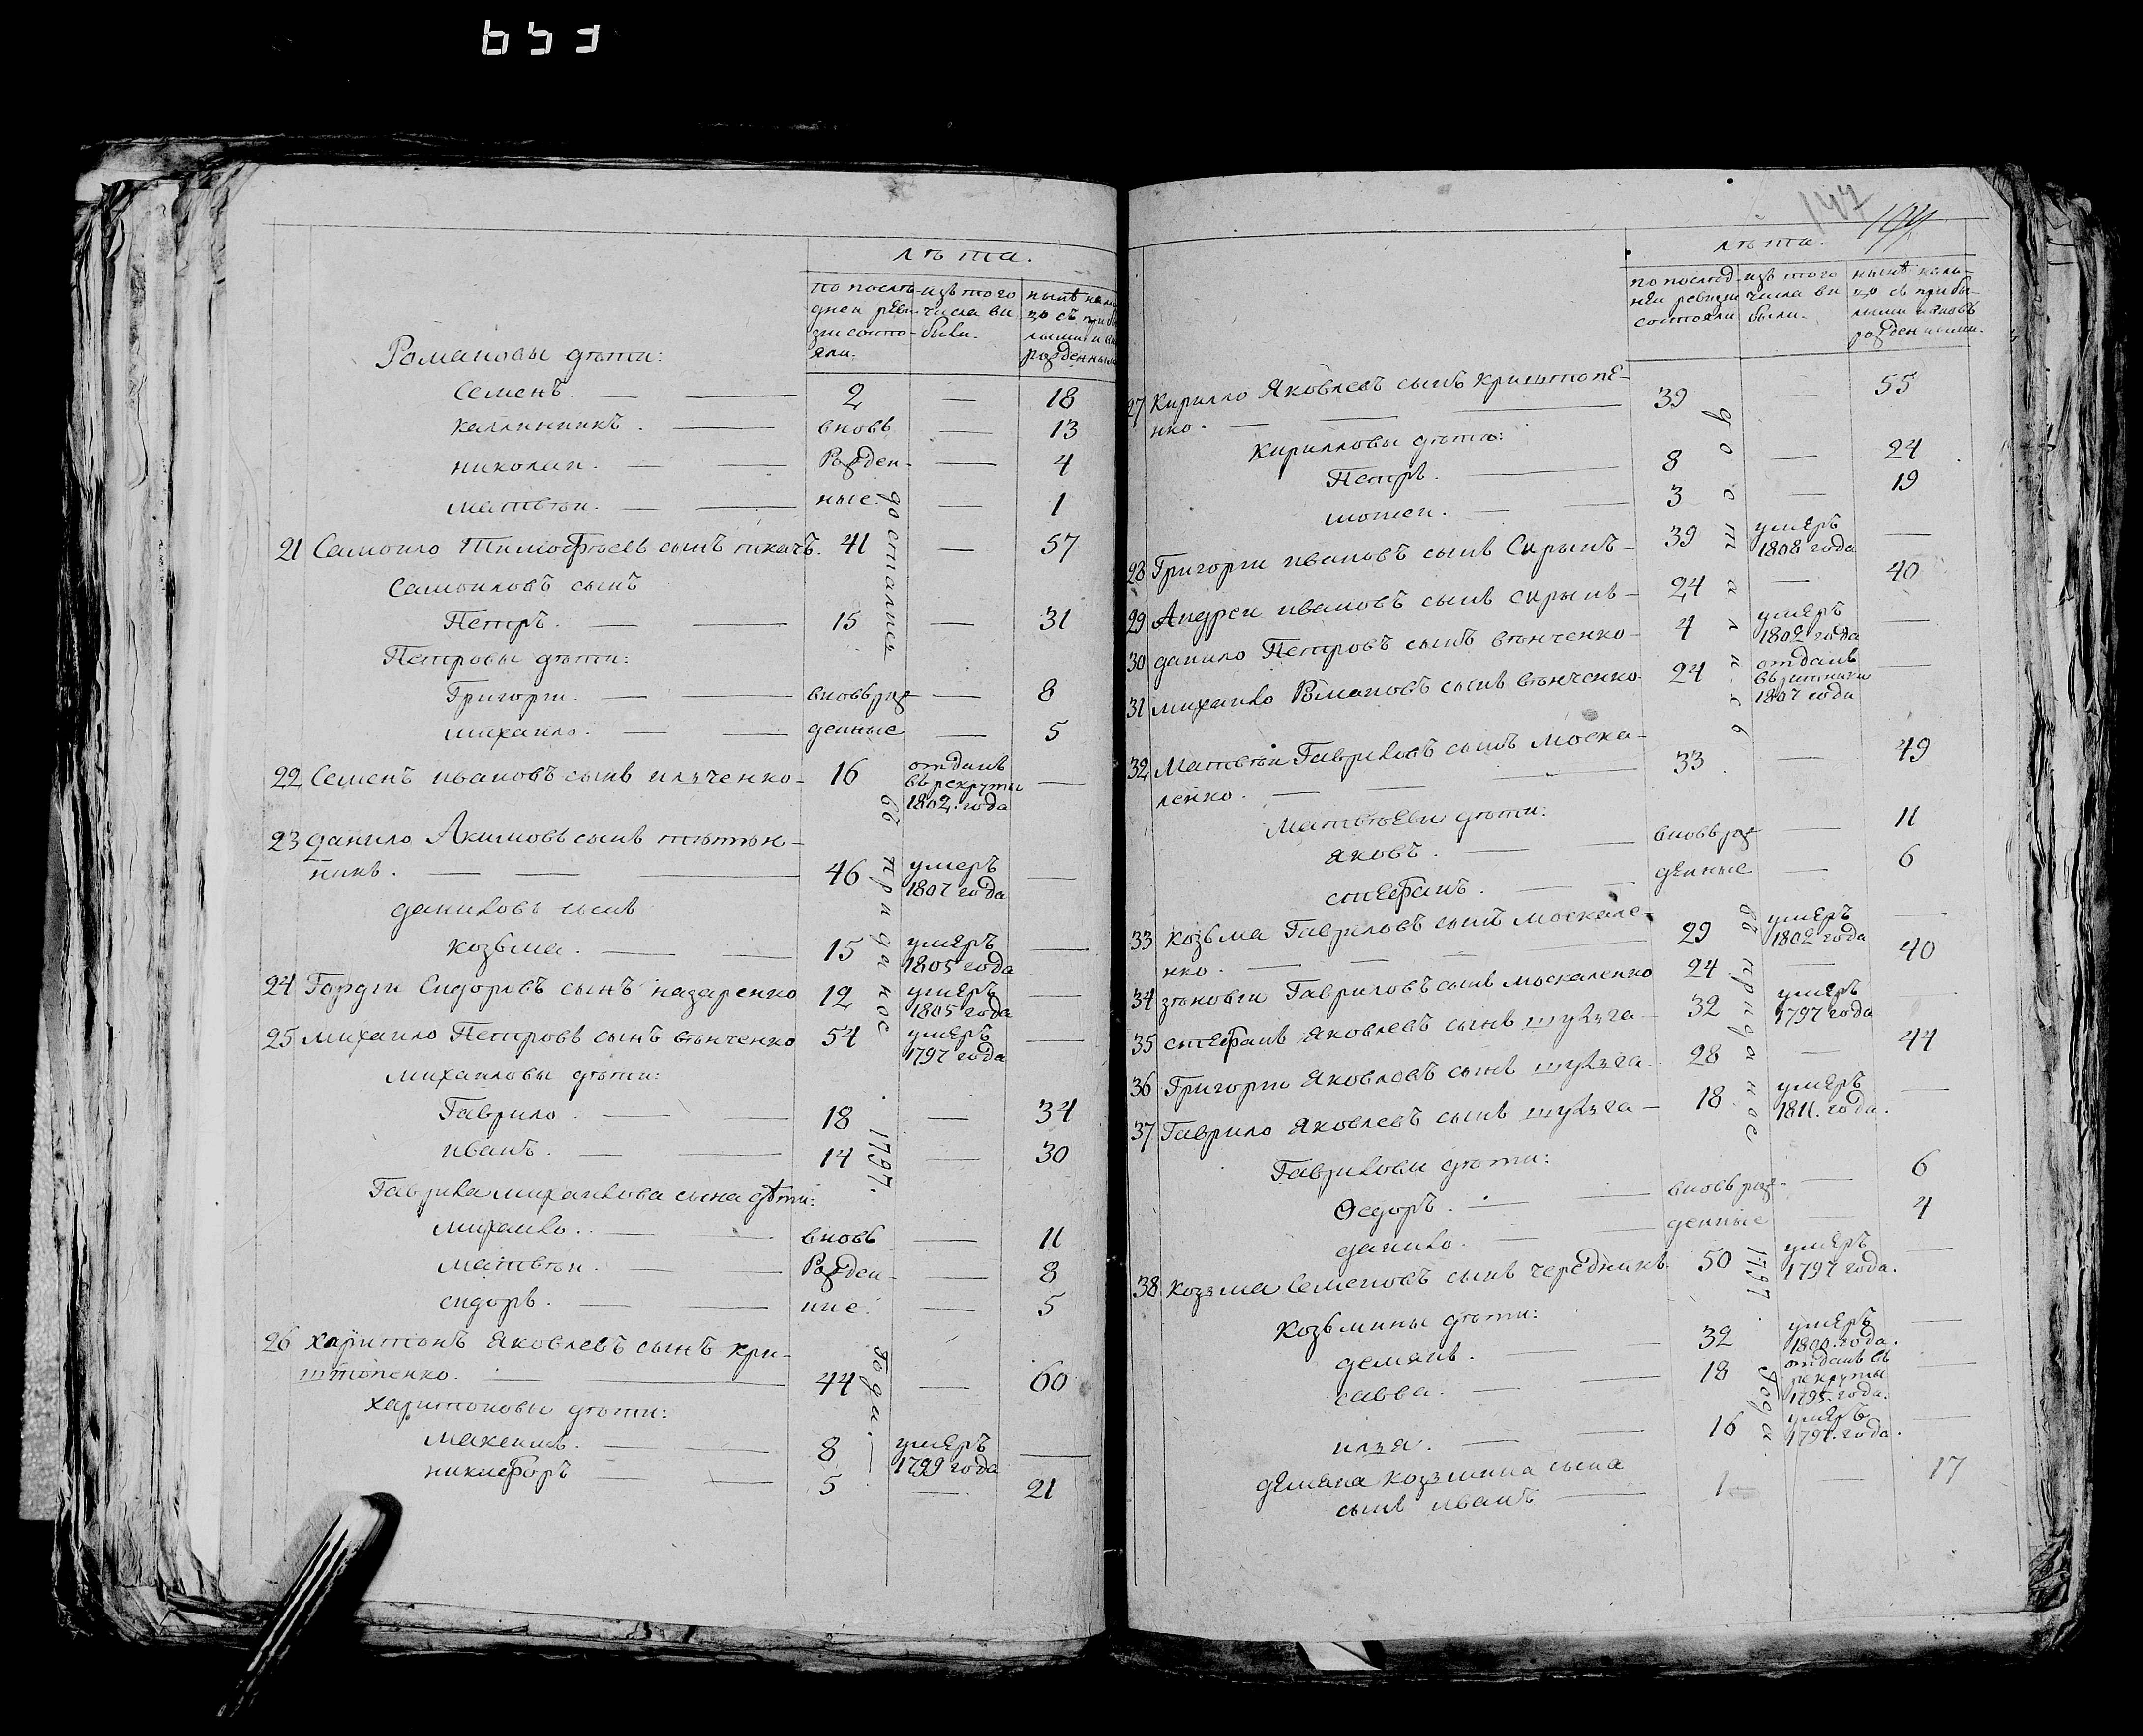 лѣта.
по послѣ- изъ того нынѣ на ли
дней реви- числа вы цо съ приб
зіи состо- были. лыми и вно
яли. рожденным
Романовы дѣти:
Семенъ. 2 — 18
каллинникъ. вновь — 13
николаи. Рожден- — 4
матвѣи. ные. — 1
21 Самоило Тимофѣевъ сынъ ткачъ. 41 — 57
Самоиловъ сынъ
Петръ. 15 — 31
Петровы дѣти:
Григори. вновь рож- — 8
михаило. денные — 5
22 Семенъ ивановъ сынъ илзченко 16 отданъ —
въ рекруты
1802. года
23 данило Акимовъ сынъ тѣтѣн-
никъ. 46 умеръ —
1807 года
даниловъ сынъ
козьма. 15 умеръ —
1805 года
24 Гордѣи Сидоровъ сынъ назаренко 12 умеръ —
1805 года
25 михаило Петровъ сынъ вѣнченко 54 умеръ —
1797 года
михаиловы дѣти:
Гаврило. 18 — 34
иванъ. 14 — 30
Гаврила михаилова сына дѣти:
михаило. вновь — 11
матвѣи. Рожден- — 8
сидоръ. ние. — 5
26 харитонъ Яковлевъ сынъ кри-
штопенко. 44 — 60
харитоновы дѣти:
максимъ. 8 умеръ —
1799 года
никифоръ 5 — 21
достались
въ приданое
1797.
года.
147
лѣта.
по послѣд- изъ того нынѣ нали-
неи ревизіи числа вы цо съ прибы-
состояли были. лыми и вновь
рожденными.
27 Кирилло Яковлевъ сынъ криштопе-
нко. 39 — 55
Кирилловы дѣти:
Петръ. 8 — 24
мотеи. 3 — 19
28 Григори ивановъ сынъ Скрыпъ 39 умеръ —
1808 года
29 Андреи ивановъ сынъ скрыпъ 24 — 40
30 данило Петровъ сынъ вѣнченко 4 умеръ —
1802 года
31 михаило Романовъ сынъ вѣнченко 24 отданъ —
1807 года
32 Матвѣи Гавриловъ сынъ моска-
ленко. 33 — 49
Матвѣевы дѣти:
яковъ. вновь рож- — 11
стефанъ. денные — 6
33 козьма Гавриловъ сынъ москале-
нко. 29 умеръ —
1802 года
34 зѣновѣи Гавриловъ сынъ москаленко 24 — 40
35 стефанъ Яковлевъ сынъ шулзга 32 умеръ
1797 года
36 Григори Яковлевъ сынъ шулзга. 28 — 44
37 Гаврило Яковлевъ сынъ шулзга 18 умеръ —
1811. года.
Гавриловы дѣти:
Ѳедоръ. вновь рож- — 6
данило. денные — 4
38 козма Семеновъ сынъ чередникъ 50 умеръ —
1797 года.
Козьмины дѣти:
демянъ. 32 умеръ —
1800. года.
савва. 18 отданъ въ —
рекруты
1795. года.
илза. 16 умеръ —
1797. года.
демяна козмина сына
сынъ иванъ 1 — 17
достались
въ приданое
1797
года.